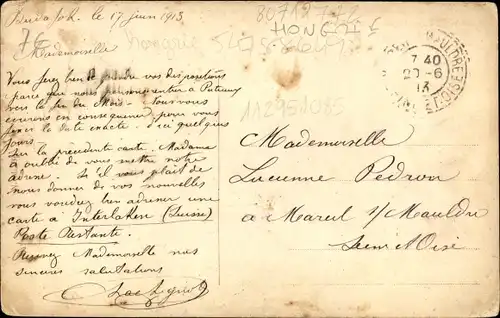 le 17 juin 1913
76
Mademoiselle
Vous serez bien de prendre vos dispositions
parce que nous pensons rentrer à Puteaux
vers la fin du Mois. Nous vous
écrirons en conséquence pour vous
fixer la date exacte d'ici quelques
jours.
Sur la précédente carte, Madame
a oublié de vous mettre notre
adresse. S'il vous plait de
nous donner de vos nouvelles
vous voudrez bien adresser une
carte à Interlaken (Suisse)
Poste Restante.
Recevez Mademoiselle nos
sincères salutations
HONGRIE
hongrie
112951085
7 40
20-6
13
Mademoiselle
Lucienne Pedron
à Mareil s/Mauldre
Seine & Oise